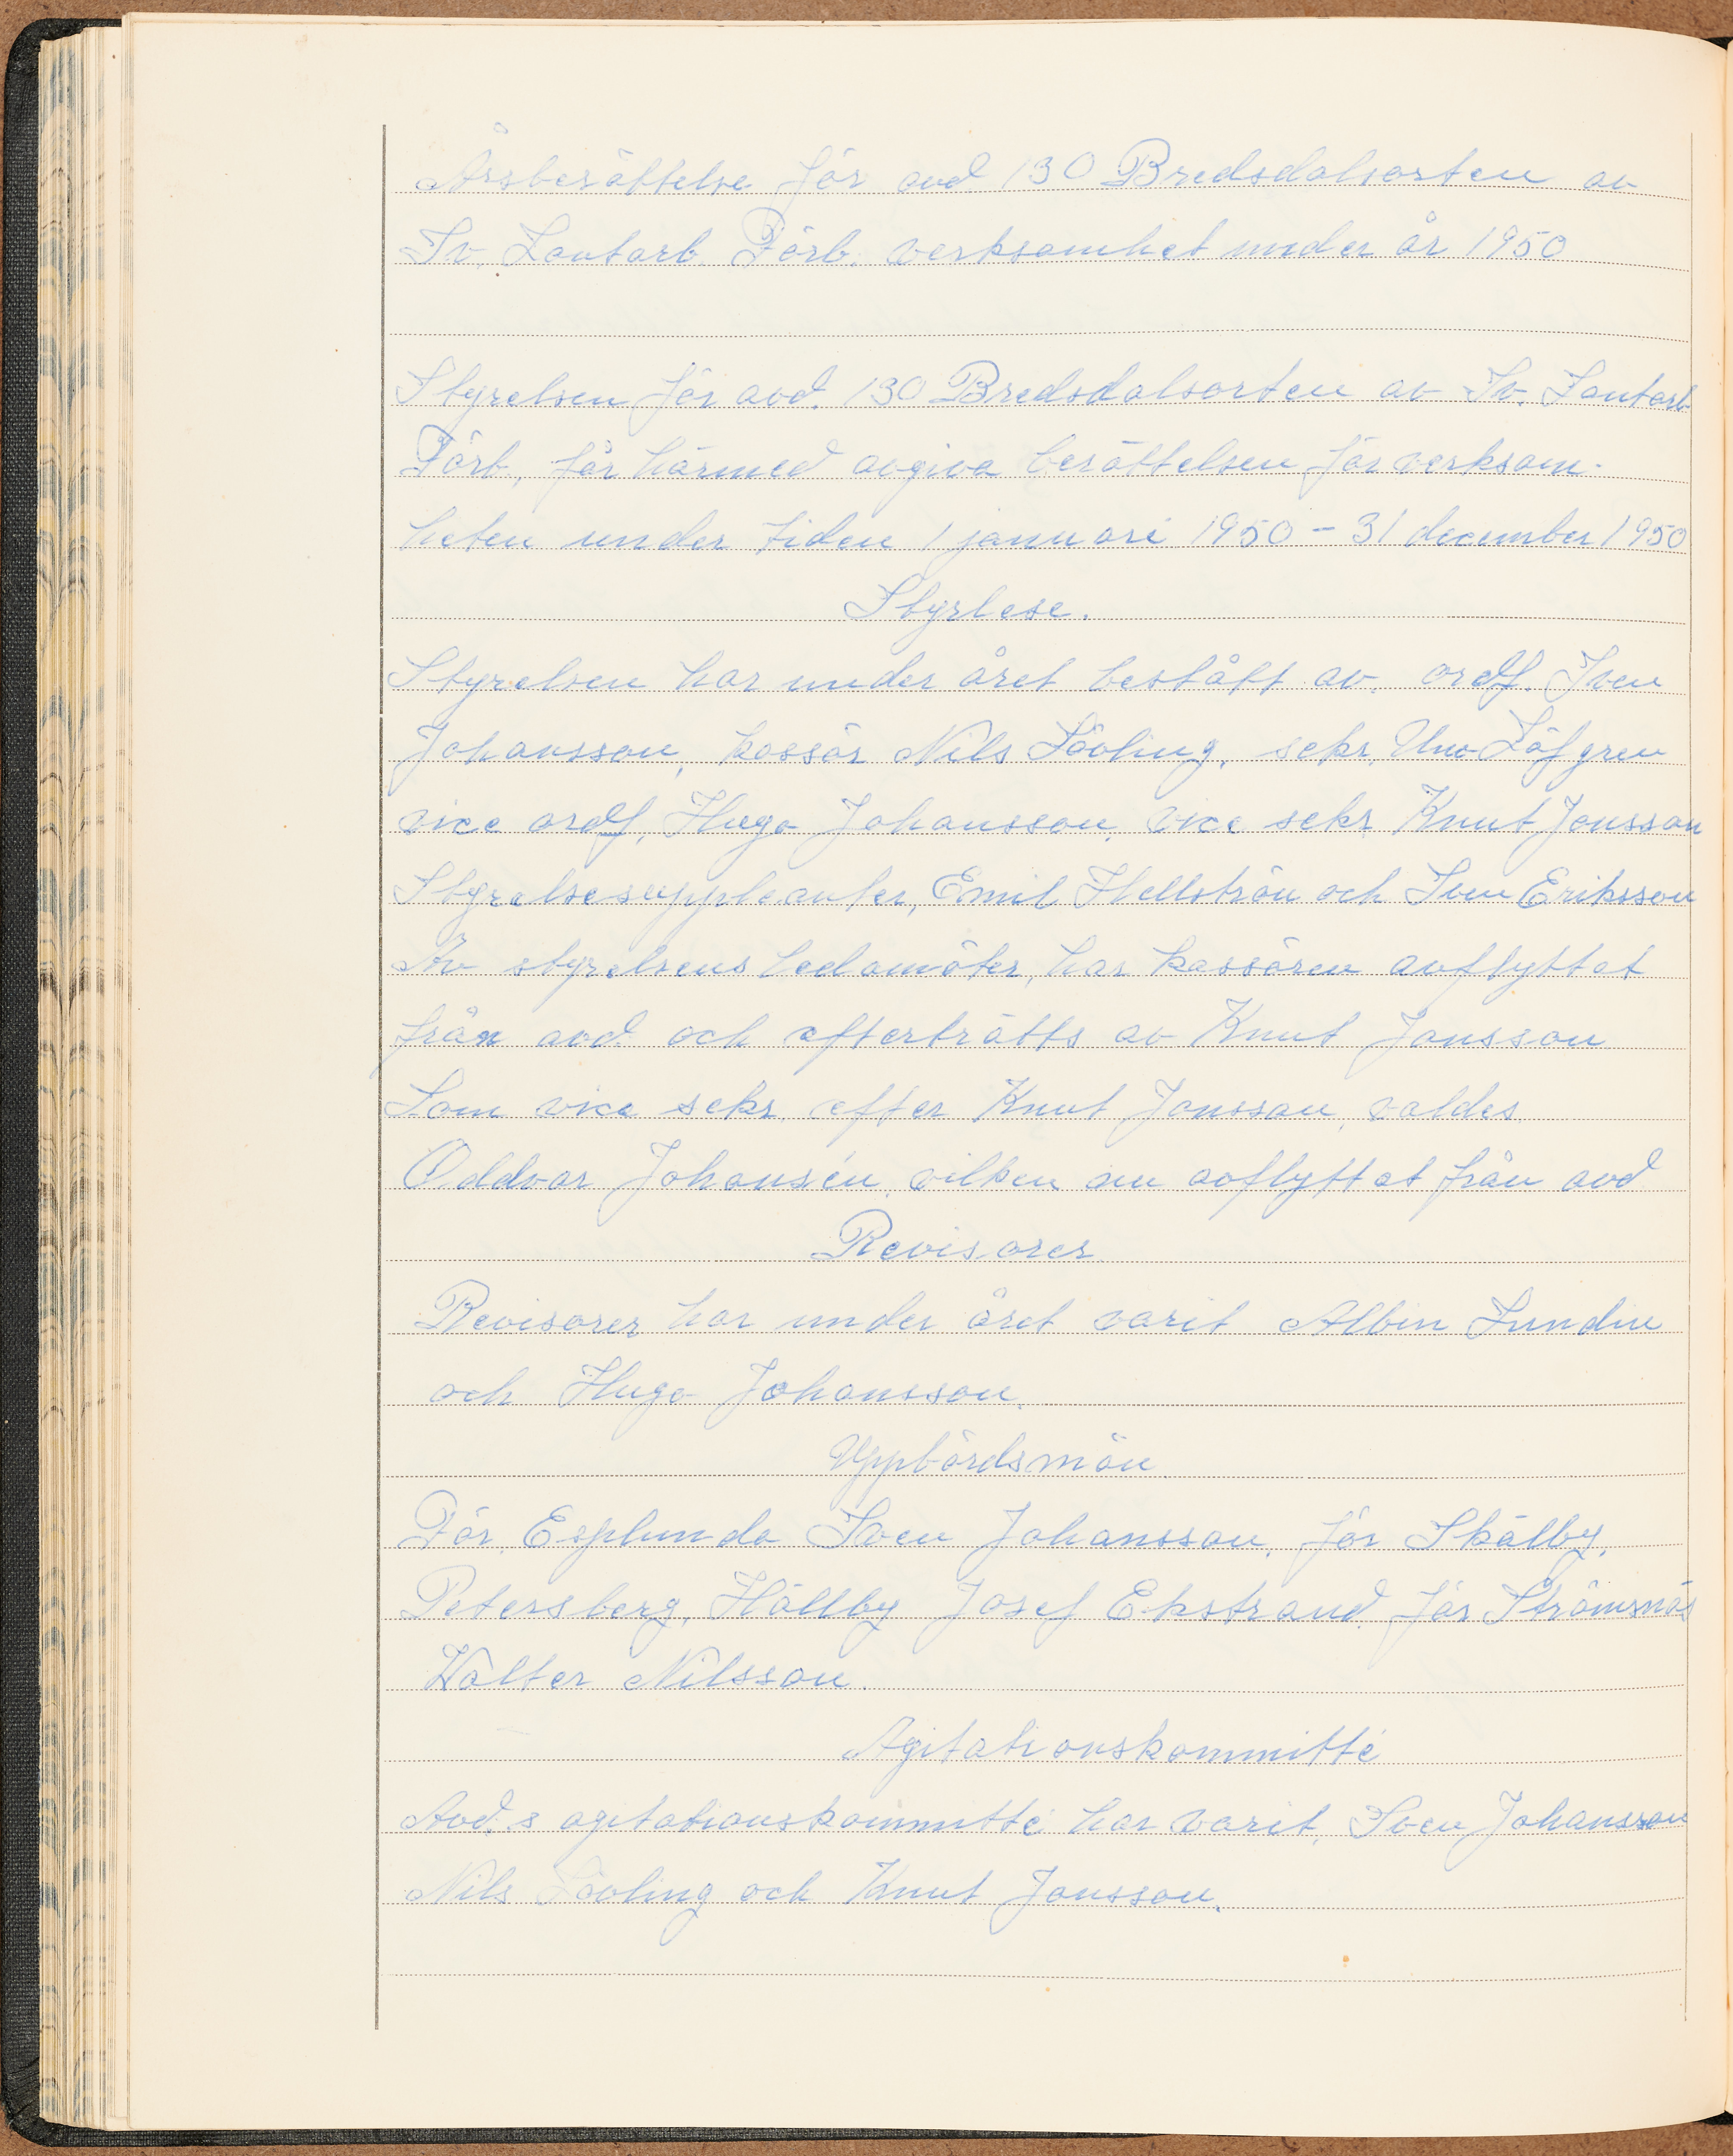 Årsberättelse för avd 130 Bredsdalsorten av
Sv. Lantarb. Förb. verksamhet under år 1950
Styrelsen för avd. 130 Bredsdalsorten av Sv. Lantarb
Förb, får härmed avgiva berättelsen för verksam-
heten under tiden 1 januari 1950 - 31 december 1950
Styrlese.
Styrelsen har under året bestått av, ordf. Sven
Johansson, kassör Nils Lövling, sekr. Uno Löfgren
vice ordf, Hugo Johansson, vice sekr Knut Jonsson
Styrelsesuppleanter, Emil Hellström och Sven Eriksson
Av styrelsens ledamöter, har kassören avflyttat
från avd och efterträtts av Knut Jonsson
Som vice sekr, efter Knut Jonsson, valdes
Oddvar Johansén, vilken nu avflyttat från avd
Revisorer
Revisorer har under året varit Albin Lundin
och Hugo Johansson.
Uppbördsmän
För Esplunda Sven Johansson, för Skälby,
Petersberg, Hällby Josef Ekstrand, för Strömsnäs
Walter Nilsson.
Agitationskommitté
Avd.s agitationskommitté har varit, Sven Johansson
Nils Lövling och Knut Jonsson.